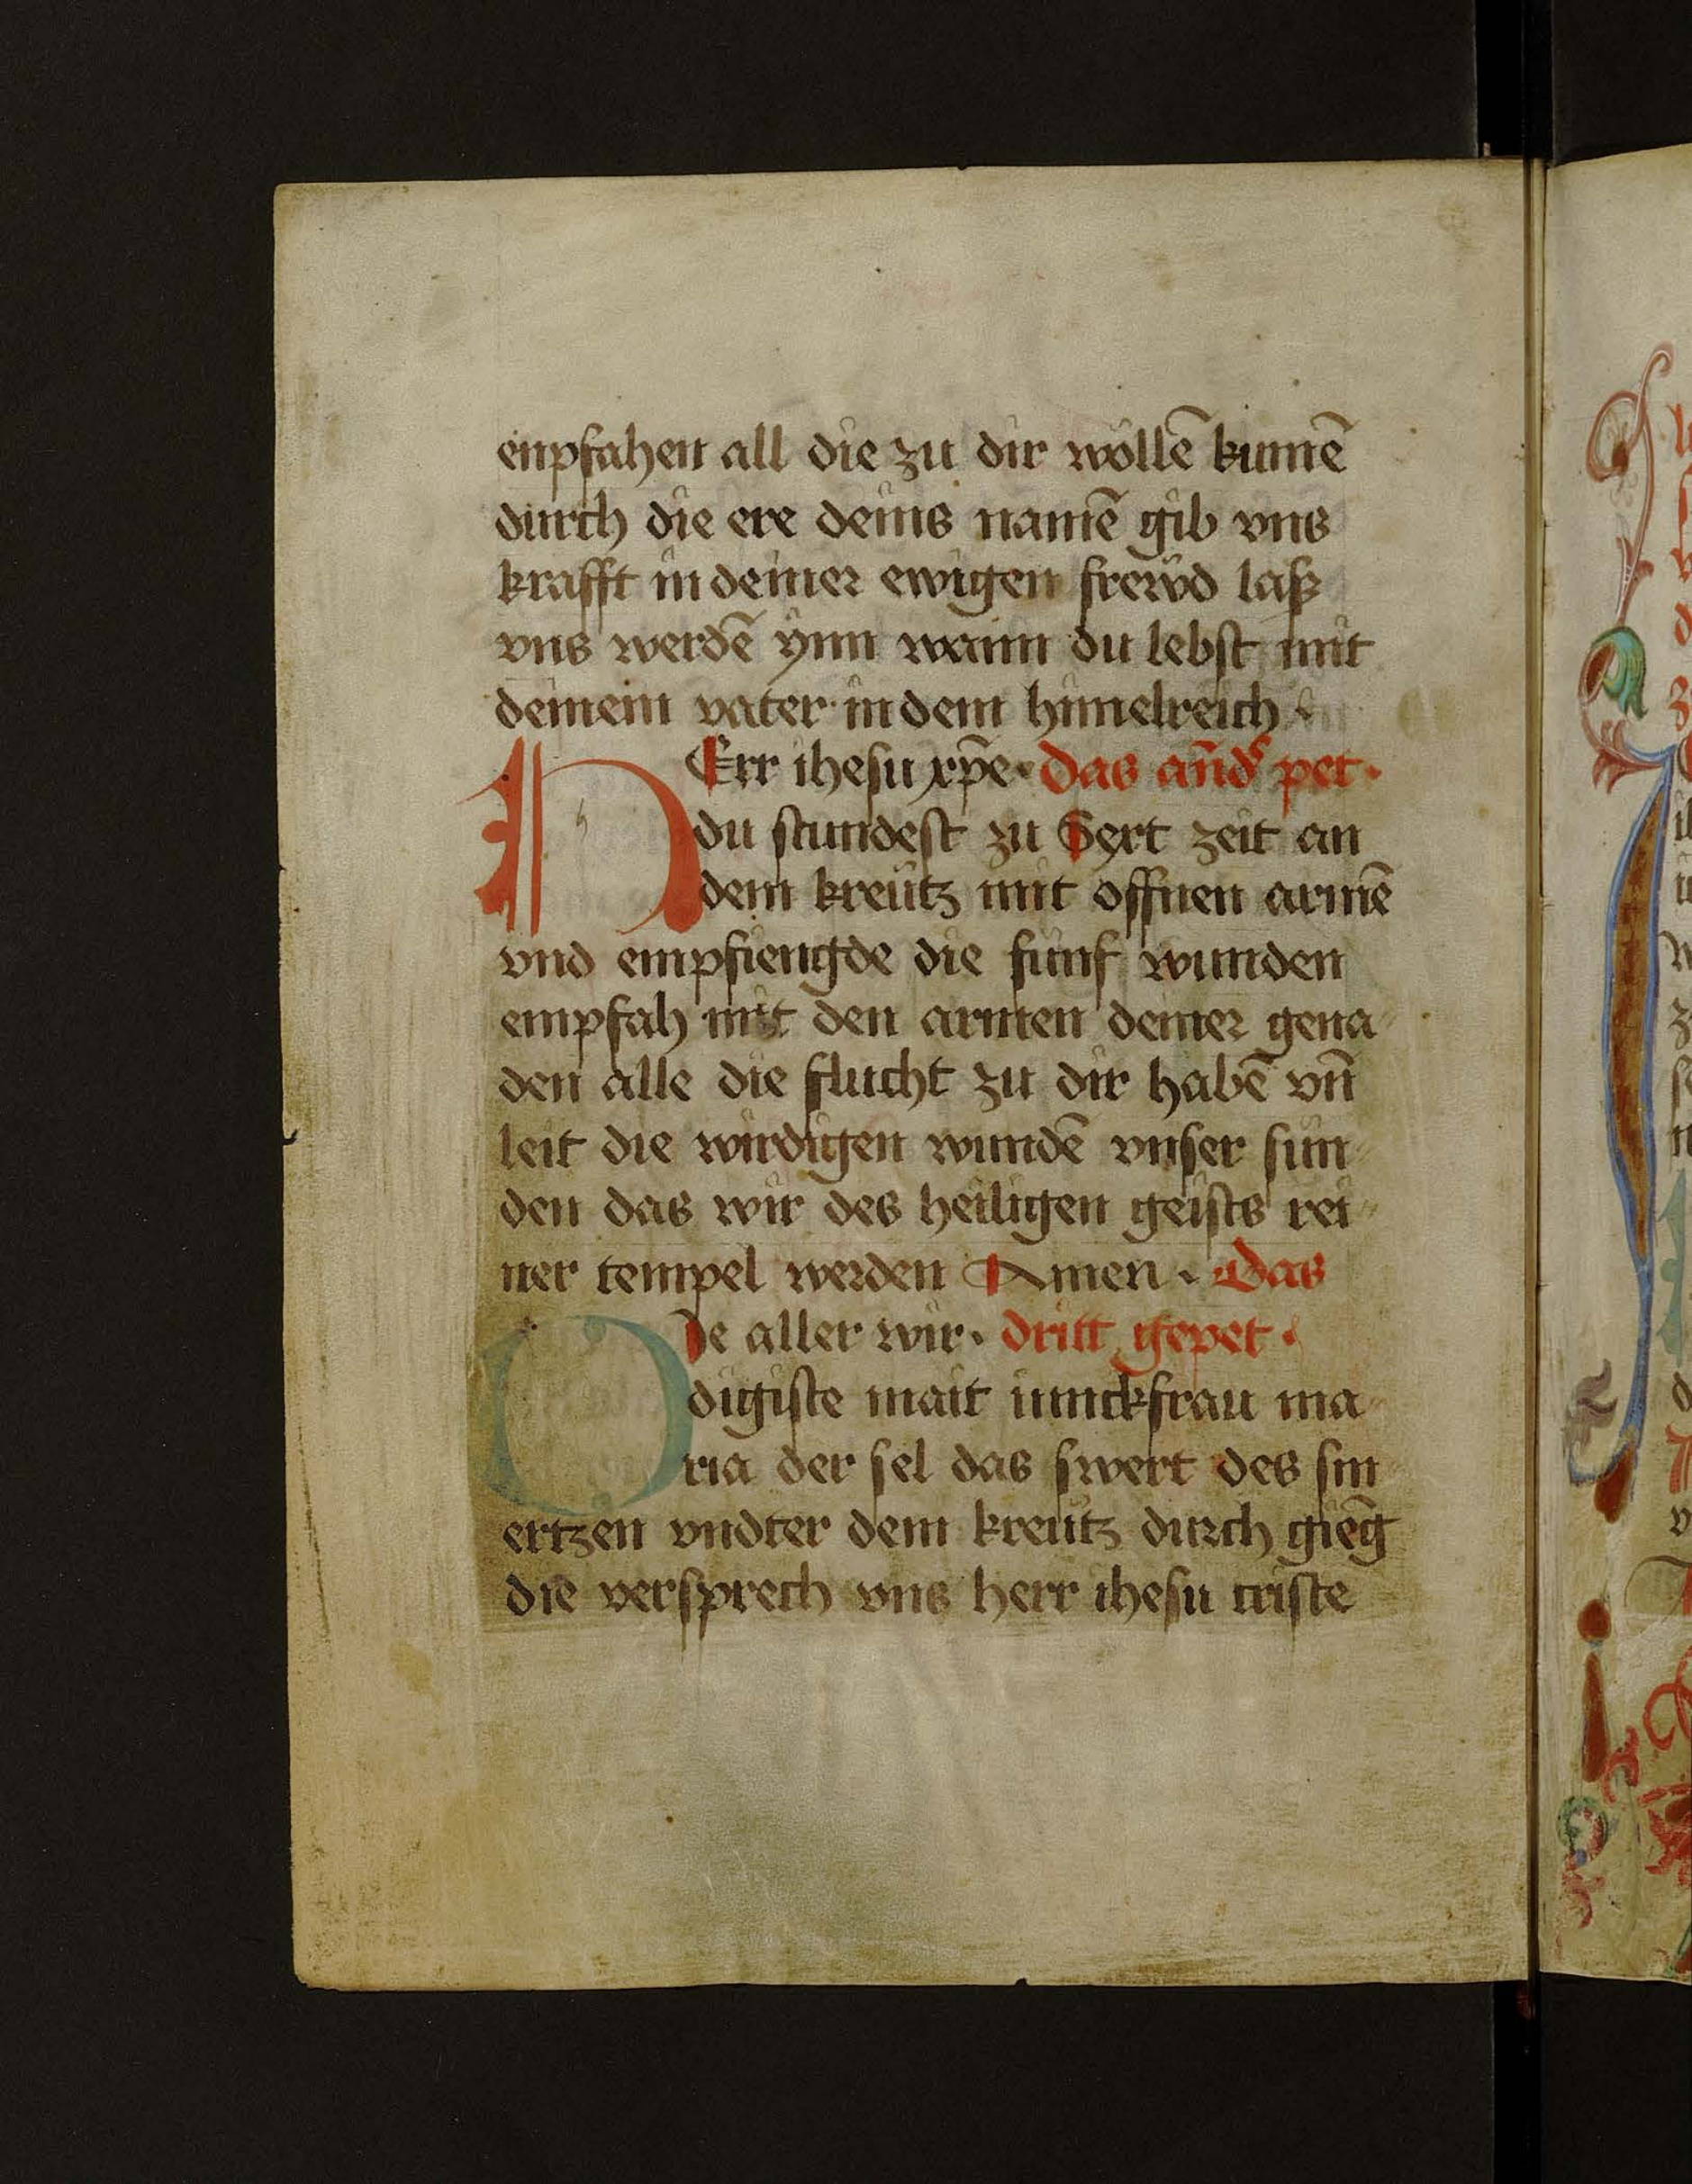 enpfahen all die zu dir wöllē kumē
durch die ere deins namē gib vns
krafft in deiner ewigen frewd laß
vns werdē ynn wann du lebst mit
deinem vater in dem himelreich
HErr ihesu xp̄e· das and̄ pet·
du stundest zu Sext zeit an
dem kreutz mit offnen armē
vnd empfiengde die funf wunden
empfah mit den armen deiner gena
den alle die flucht zu dir habē vn̄
leit die wirdigen wundē vnser sun
den das wir des heiligen geists rei
ner tempel werden Amen · Das
ODe aller wir· dritt gepet·
digiste mait iunckfrau ma
ria der sel das swert des sm
ertzen vndter dem kreutz durch giēg
die versprech vns herr ihesu criste